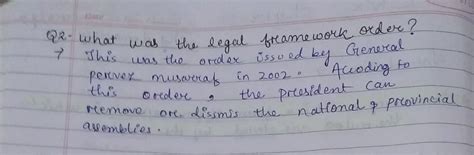 Q2- What was the legal framework order?
→ This was the order issued by General
pervez musaraf in 2002. Acoding to
this order, the president can
remove or dismis the national & provincial
assemblies.